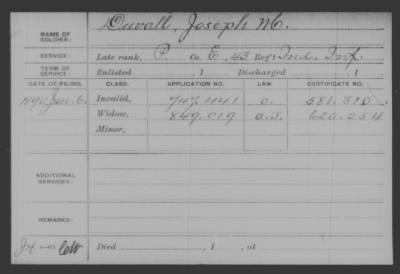 NAME OF SOLDIER: Duvall, Joseph M.
SERVICE: Late rank, P. Co. E, 43 Reg't Ind. Inf.
TERM OF SERVICE: Enlisted , 1 Discharged , 1
DATE OF FILING. CLASS. APPLICATION NO. LAW. CERTIFICATE NO.
Invalid, 747.441 O. 581.310
Widow, 849.019 O.J. 620.254
Minor,
ADDITIONAL SERVICES:
REMARKS:
Died , 1 , at